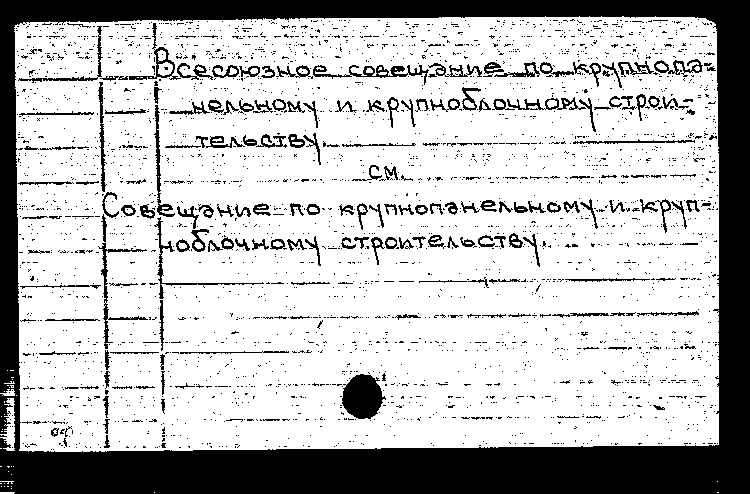 Всесоюзное совещание по крупнопа-
нельному и крупноблочному строи-
тельству.
см.
Совещание по крупнопанельному и круп-
ноблочному строительству.